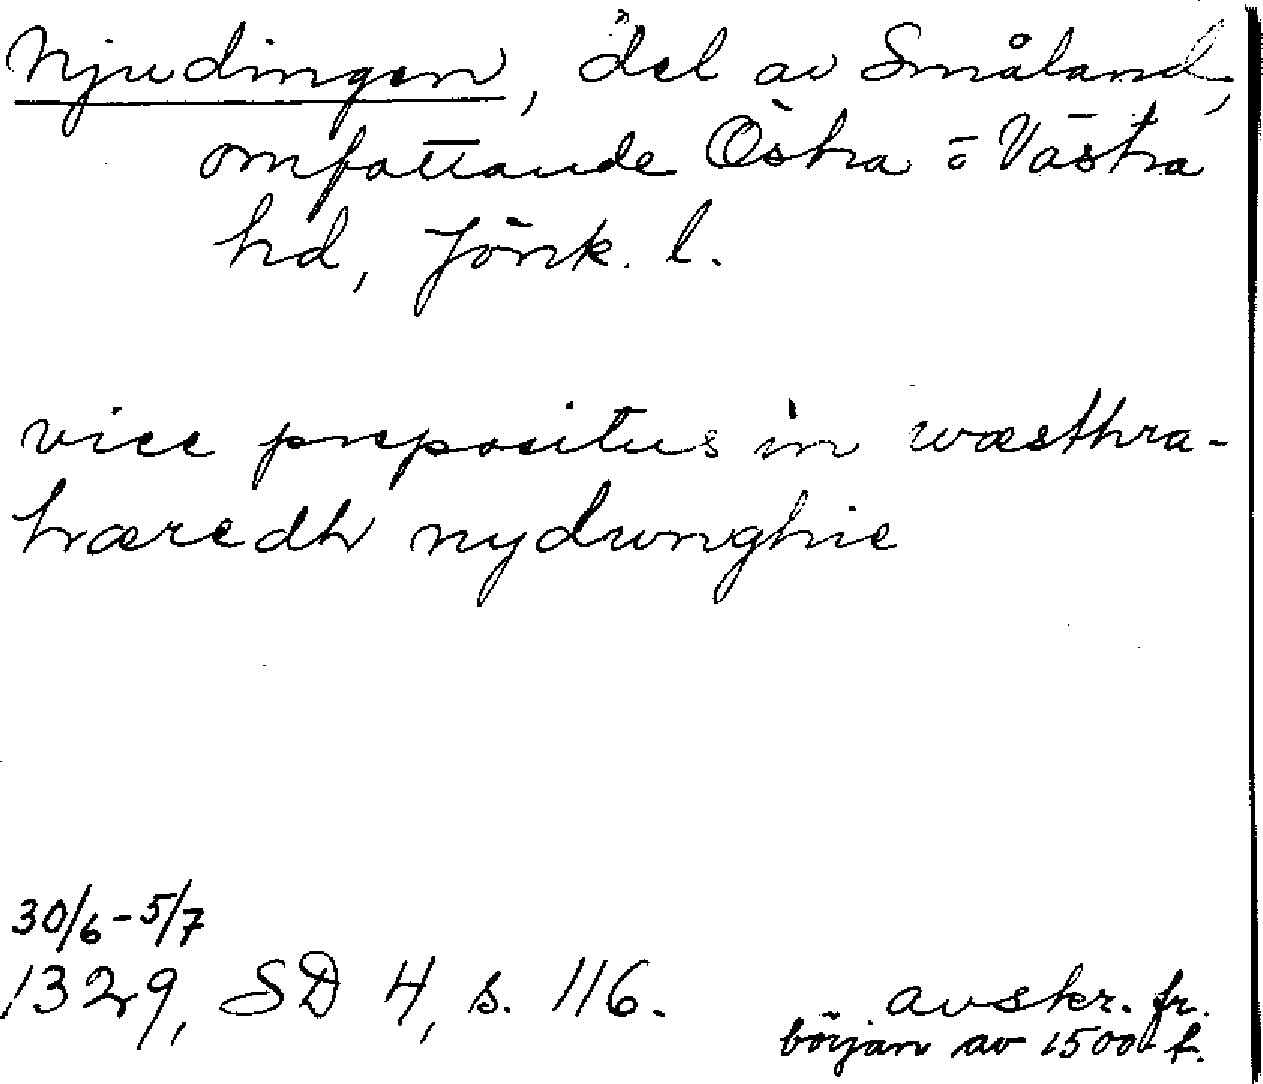 Njudingen, del av Småland,
omfattande Östra o Västra
hd, Jönk. l.
vice prepositus in wæsthra-
hæredh nydwnghie
30/6-5/7
1329, SD 4, s. 116.
avskr. fr.
början av 1500-t.